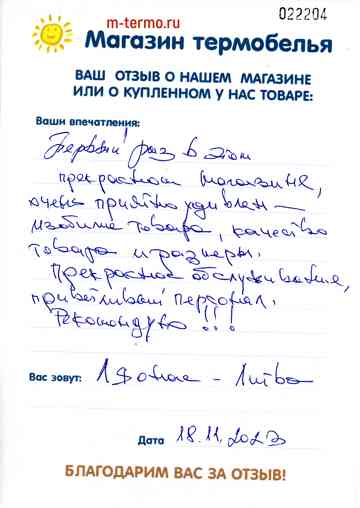 022204
m-termo.ru
Магазин термобелья
ВАШ ОТЗЫВ О НАШЕМ МАГАЗИНЕ
ИЛИ О КУПЛЕННОМ У НАС ТОВАРЕ:
Ваши впечатления:
Первый раз в этом
прекрасном магазине,
очень приятно удивлен –
изобилие товара, качество
товара и размеры.
Прекрасное обслуживание,
приветливый персонал.
Рекомендую!!!
Вас зовут: – Литва
Дата 18.11.2023
БЛАГОДАРИМ ВАС ЗА ОТЗЫВ!